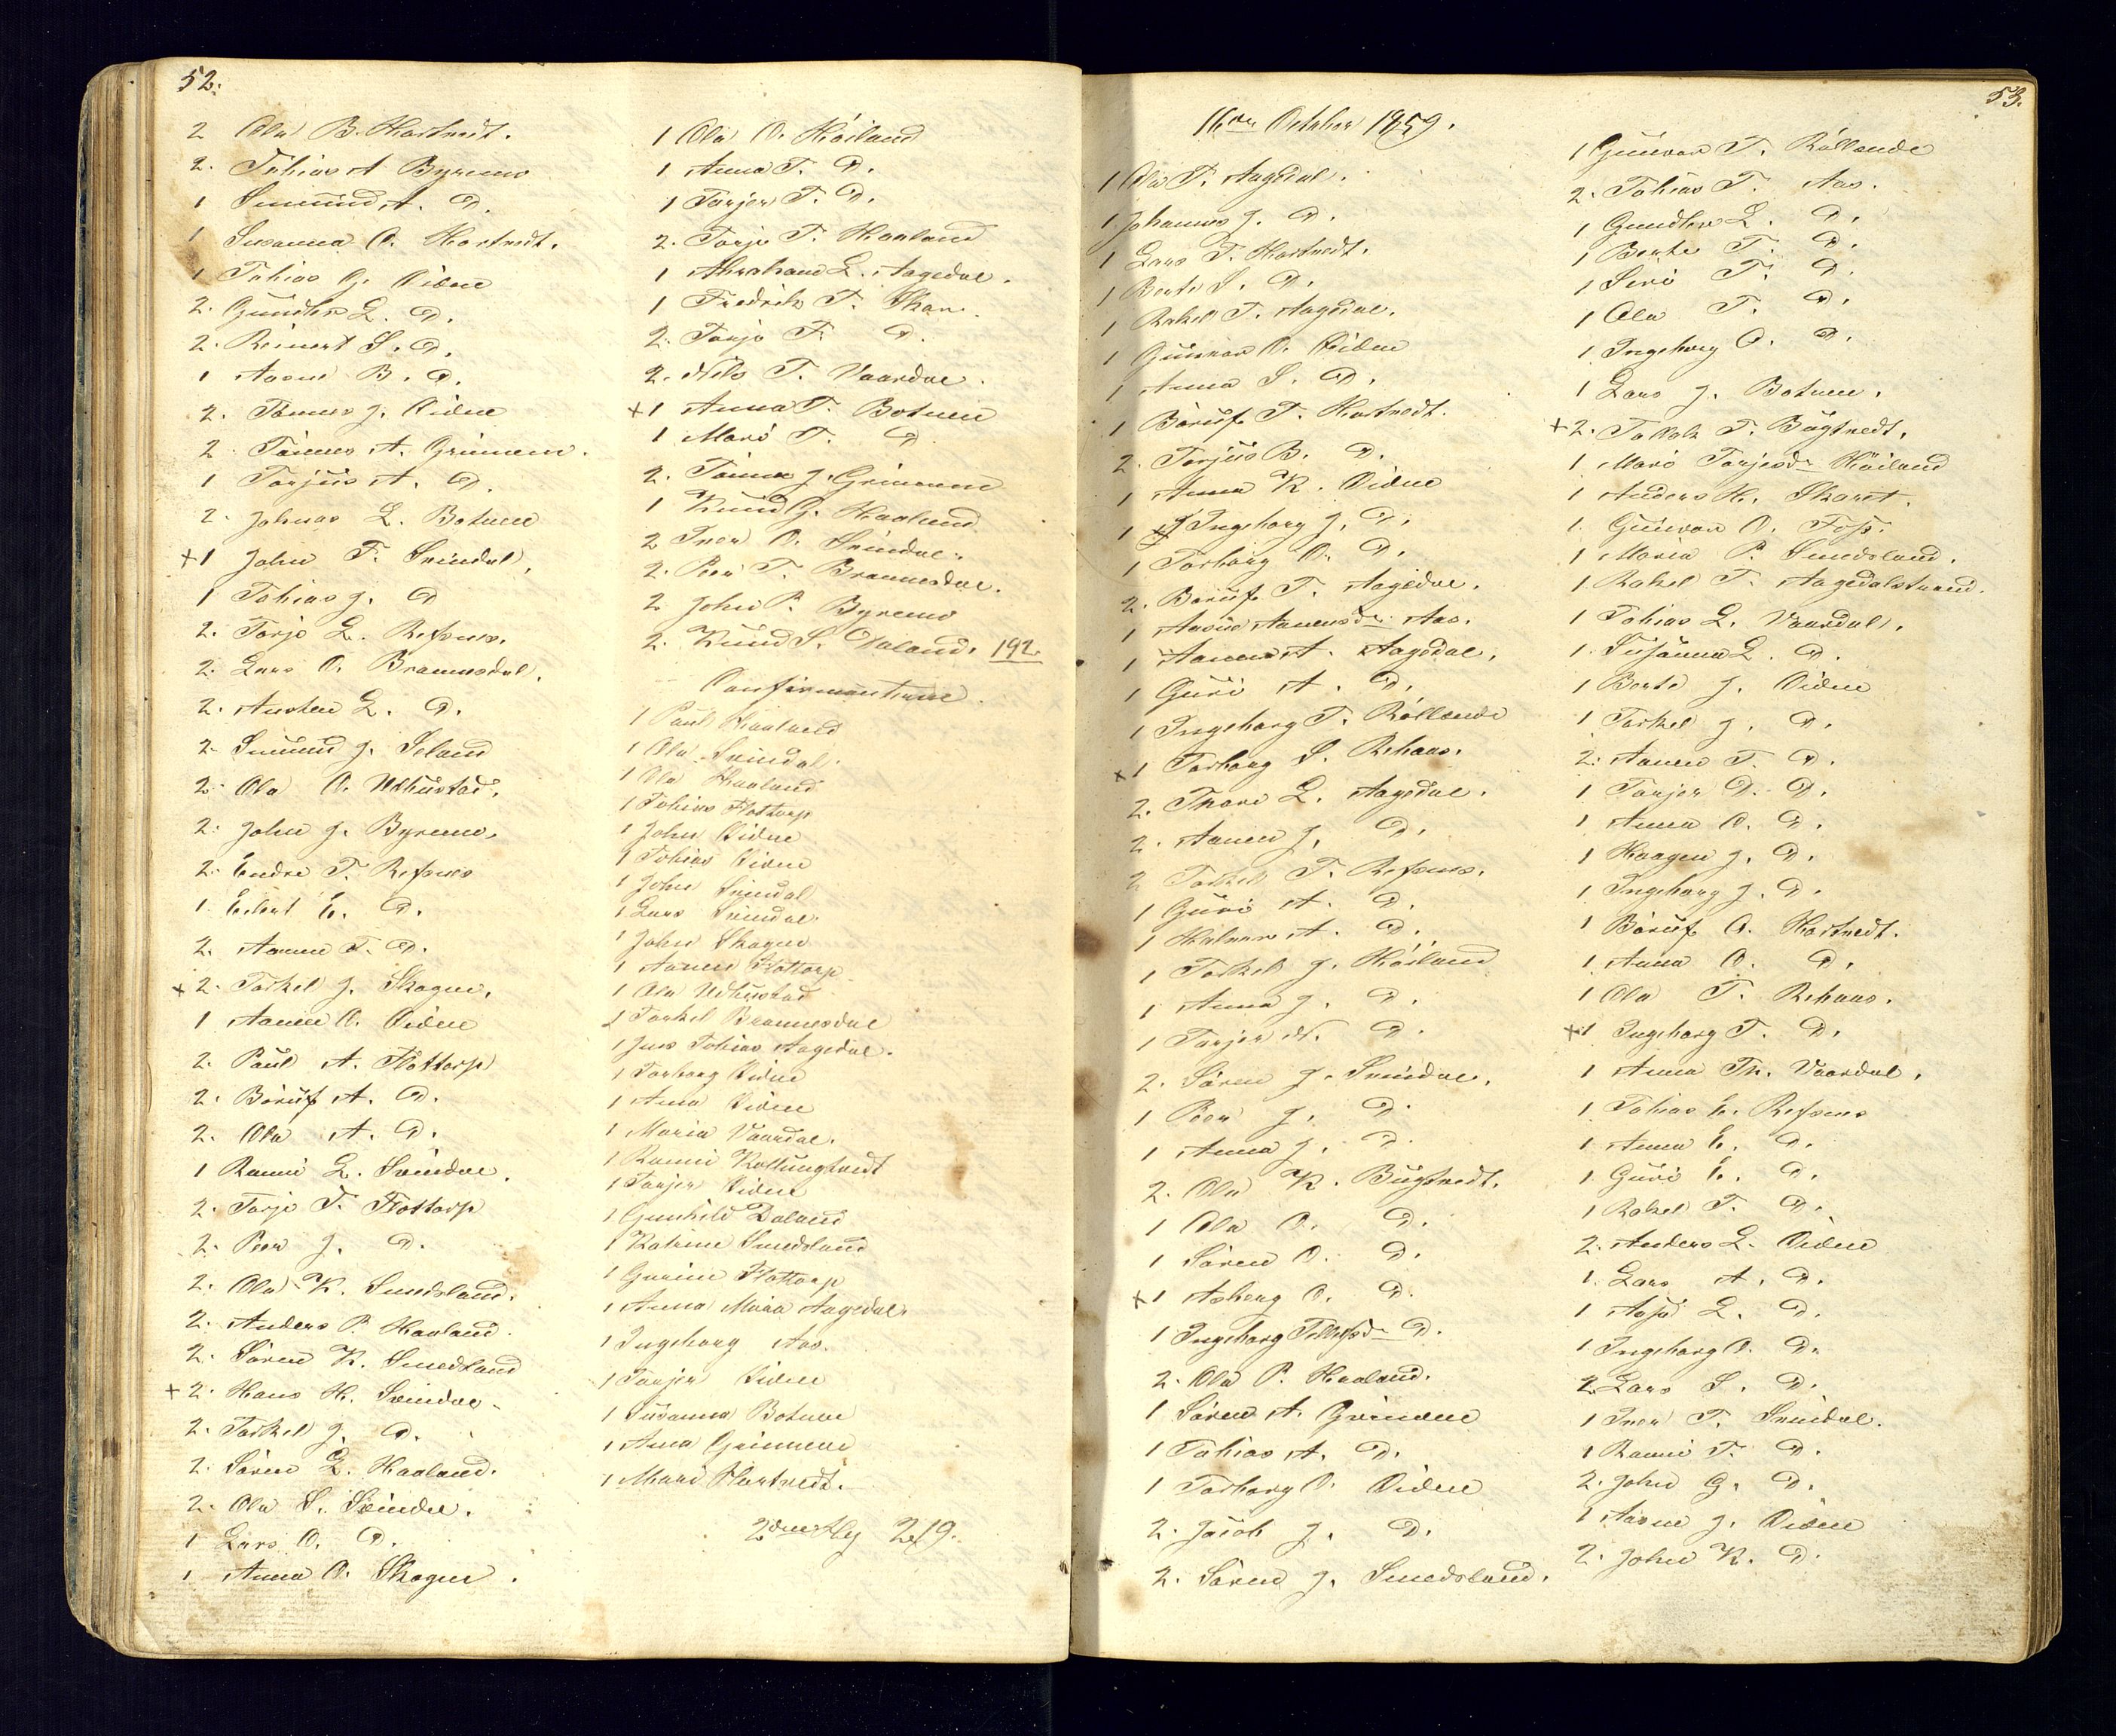 52.
2 Ola B. Hortvedt.
2. Tobias A Byremo
1 Smund A. D.
1 Susanna O. Hortvedt.
1 Tobias G. Eidne
2. Gundler L. D.
2. Reinert S. D.
1 Aasne B. D.
2. Tønnes J. Eidne
2. Tönnes A. Grinnem.
1 Torjüs A. D.
2. Johnas L. Botnen
+ 1 John T. Sveindal.
1 Tobias J. D
2. Torje L. Refsnes.
2. Lars O. Brannesdal.
2. Austen L. D.
2. Smund J. Seland
2. Ola O. Udhustad.
2. John J. Byremo.
2. Endre T. Refsnes
1 Eilert E. D.
2. Aanen T. D.
+ 2. Torkel J. Skagen.
1 Aanen O. Eidne
2. Paul A. Flottorp
2. Börüf A. D.
2. Ola A. D.
1 Ranni L. Sveindal.
2. Torje T. Flottorp
2. Peer J. D.
2. Ola K. Smedsland.
2. Anders P. Haaland.
2. Sören K. Smedsland
+ 2. Hans H. Sveindal.
2. Torkel J. D.
2. Sören L. Haaland.
2. Ola S. Sveindal.
1 Lars O. D.
1 Anna O. Skagen.
1 Ola O. Höiland
1 Anna T. D.
1 Torjer T. D.
2. Torje T. Haaland
1 Abraham L. Aagedal.
1 Fredrik T. Skar.
2. Torje F. D.
2. Nils T. Vaardal.
+ 1 Anna T. Botnen
1 Mari T. D
2. Tönnes J. Grinnem
1 Knud G. Haaland
2 Iver O. Sveindal.
2. Peer T. Brannesdal.
2 John P. Byremo
2. Knud S. Øvland. 192.
Confirmanterne.
1 Paul Haaland
1 Ola Sveindal.
1 Ola Haaland
1 Tobias Flottorp
1 John Eidne
1 Tobias Eidne
1 John Sveindal
1 Lars Sveindal.
1 John Skagen
1 Aanen Flottorp
1 Ola Udhustad
1 Torkel Brannesdal
1 Jens Tobias Aagedal.
1 Torborg Eidne
1 Anna Eidne
1 Maria Vaardal.
1 Ranni Kollungtvedt
1 Torjer Eidne
1 Gunhild Daland
1 Katrine Smedsland
1 Gurine Flottorp
1 Anna Maria Aagedal.
1 Ingeborg Aas.
1 Torjer Eidne
1 Susanna Botnen
1 Anna Grinnem
1 Mari Hortvedt.
219.
53.
16de October 1859.
1 Ola T. Aagedal.
1 Johannes J. D.
1 Lars T. Hortvedt.
1 Berte S. D.
1 Rakel T. Aagedal.
1 Gunvor O. Eidne
1 Anna S. D.
1 Börüf T. Hortvedt.
2. Torjüs B. D.
1 Anna K. Eidne
1 Ingeborg J. D.
1 Torborg O. D.
2. Börüf T. Aagedal.
1 Aasne Aanensdr Aas.
1 Aanen A. Aagedal.
1 Guri A. D.
1 Ingeborg T. Röllende
+ 1 Torborg S. Rehaas.
2. Thore L. Aagedal.
2. Aanen J. D.
2 Torkel T. Refsnes.
1 Guri A. D.
1 Halvor A. D.
1 Torkel J. Höiland
1 Anna J. D.
1 Torjer N. D.
2. Sören J. Sveindal.
1 Peer J. D.
1 Anna J. D.
2. Ola K. Bügtvedt.
1 Ola O. D.
1 Sören O. D.
+ 1 Asberg O. D.
1 Ingeborg Tellefsdr D.
2. Ola P. Haaland.
1 Sören A. Grinnem
1 Tobias A. D.
1 Torborg O. Eidne
2. Jacob J. D.
2. Sören J. Smedsland.
1 Gunvor T. Röllende
2. Tobias T. Aas.
1 Gundler L. D.
1 Berte T. D.
1 Siri T. D.
1 Ola T. D.
1 Ingeborg O. D.
1 Lars J. Botnen.
+ 2. Tollak T. Bügtvedt.
1 Mari Torjesdr Höiland
1 Anders H. Skaret.
1. Gunvor O. Foss.
1 Maria P. Smedsland.
1. Rakel T. Aagedalstrand.
1 Tobias L. Vaardal.
1. Susanna L. D.
1 Berte J. Eidne
1 Torkel J. D.
2. Aanen T. D.
1 Torjer D. D.
1 Anna O. D.
1 Haagen J. D.
1 Ingeborg J. D.
1 Börüf O. Hortvedt.
1 Anna O. D.
1 Ola T. Rehaas.
+ 1 Ingeborg T. D.
1 Anna Th. Vaardal.
1 Tobias E. Refsnes
1 Anna E. D.
1 Guri E. D.
1 Rakel T. D.
2. Anders L. Eidne
1. Lars A. D.
1 Aase L. D.
1 Ingeborg O. D.
2. Lars S. D.
1 Iver T. Sveindal.
1 Ranni T. D.
2. John G. D.
1 Aasne J. Eidne
2. John K. D.